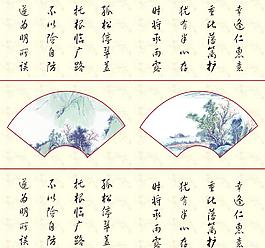 幸逢仁惠意
重此藩篱护
犹有半心存
时将承雨露
孤松停翠盖
托根临广路
不以险自防
遂为明所误
幸逢仁惠意
重此藩篱护
犹有半心存
时将承雨露
孤松停翠盖
托根临广路
不以险自防
遂为明所误